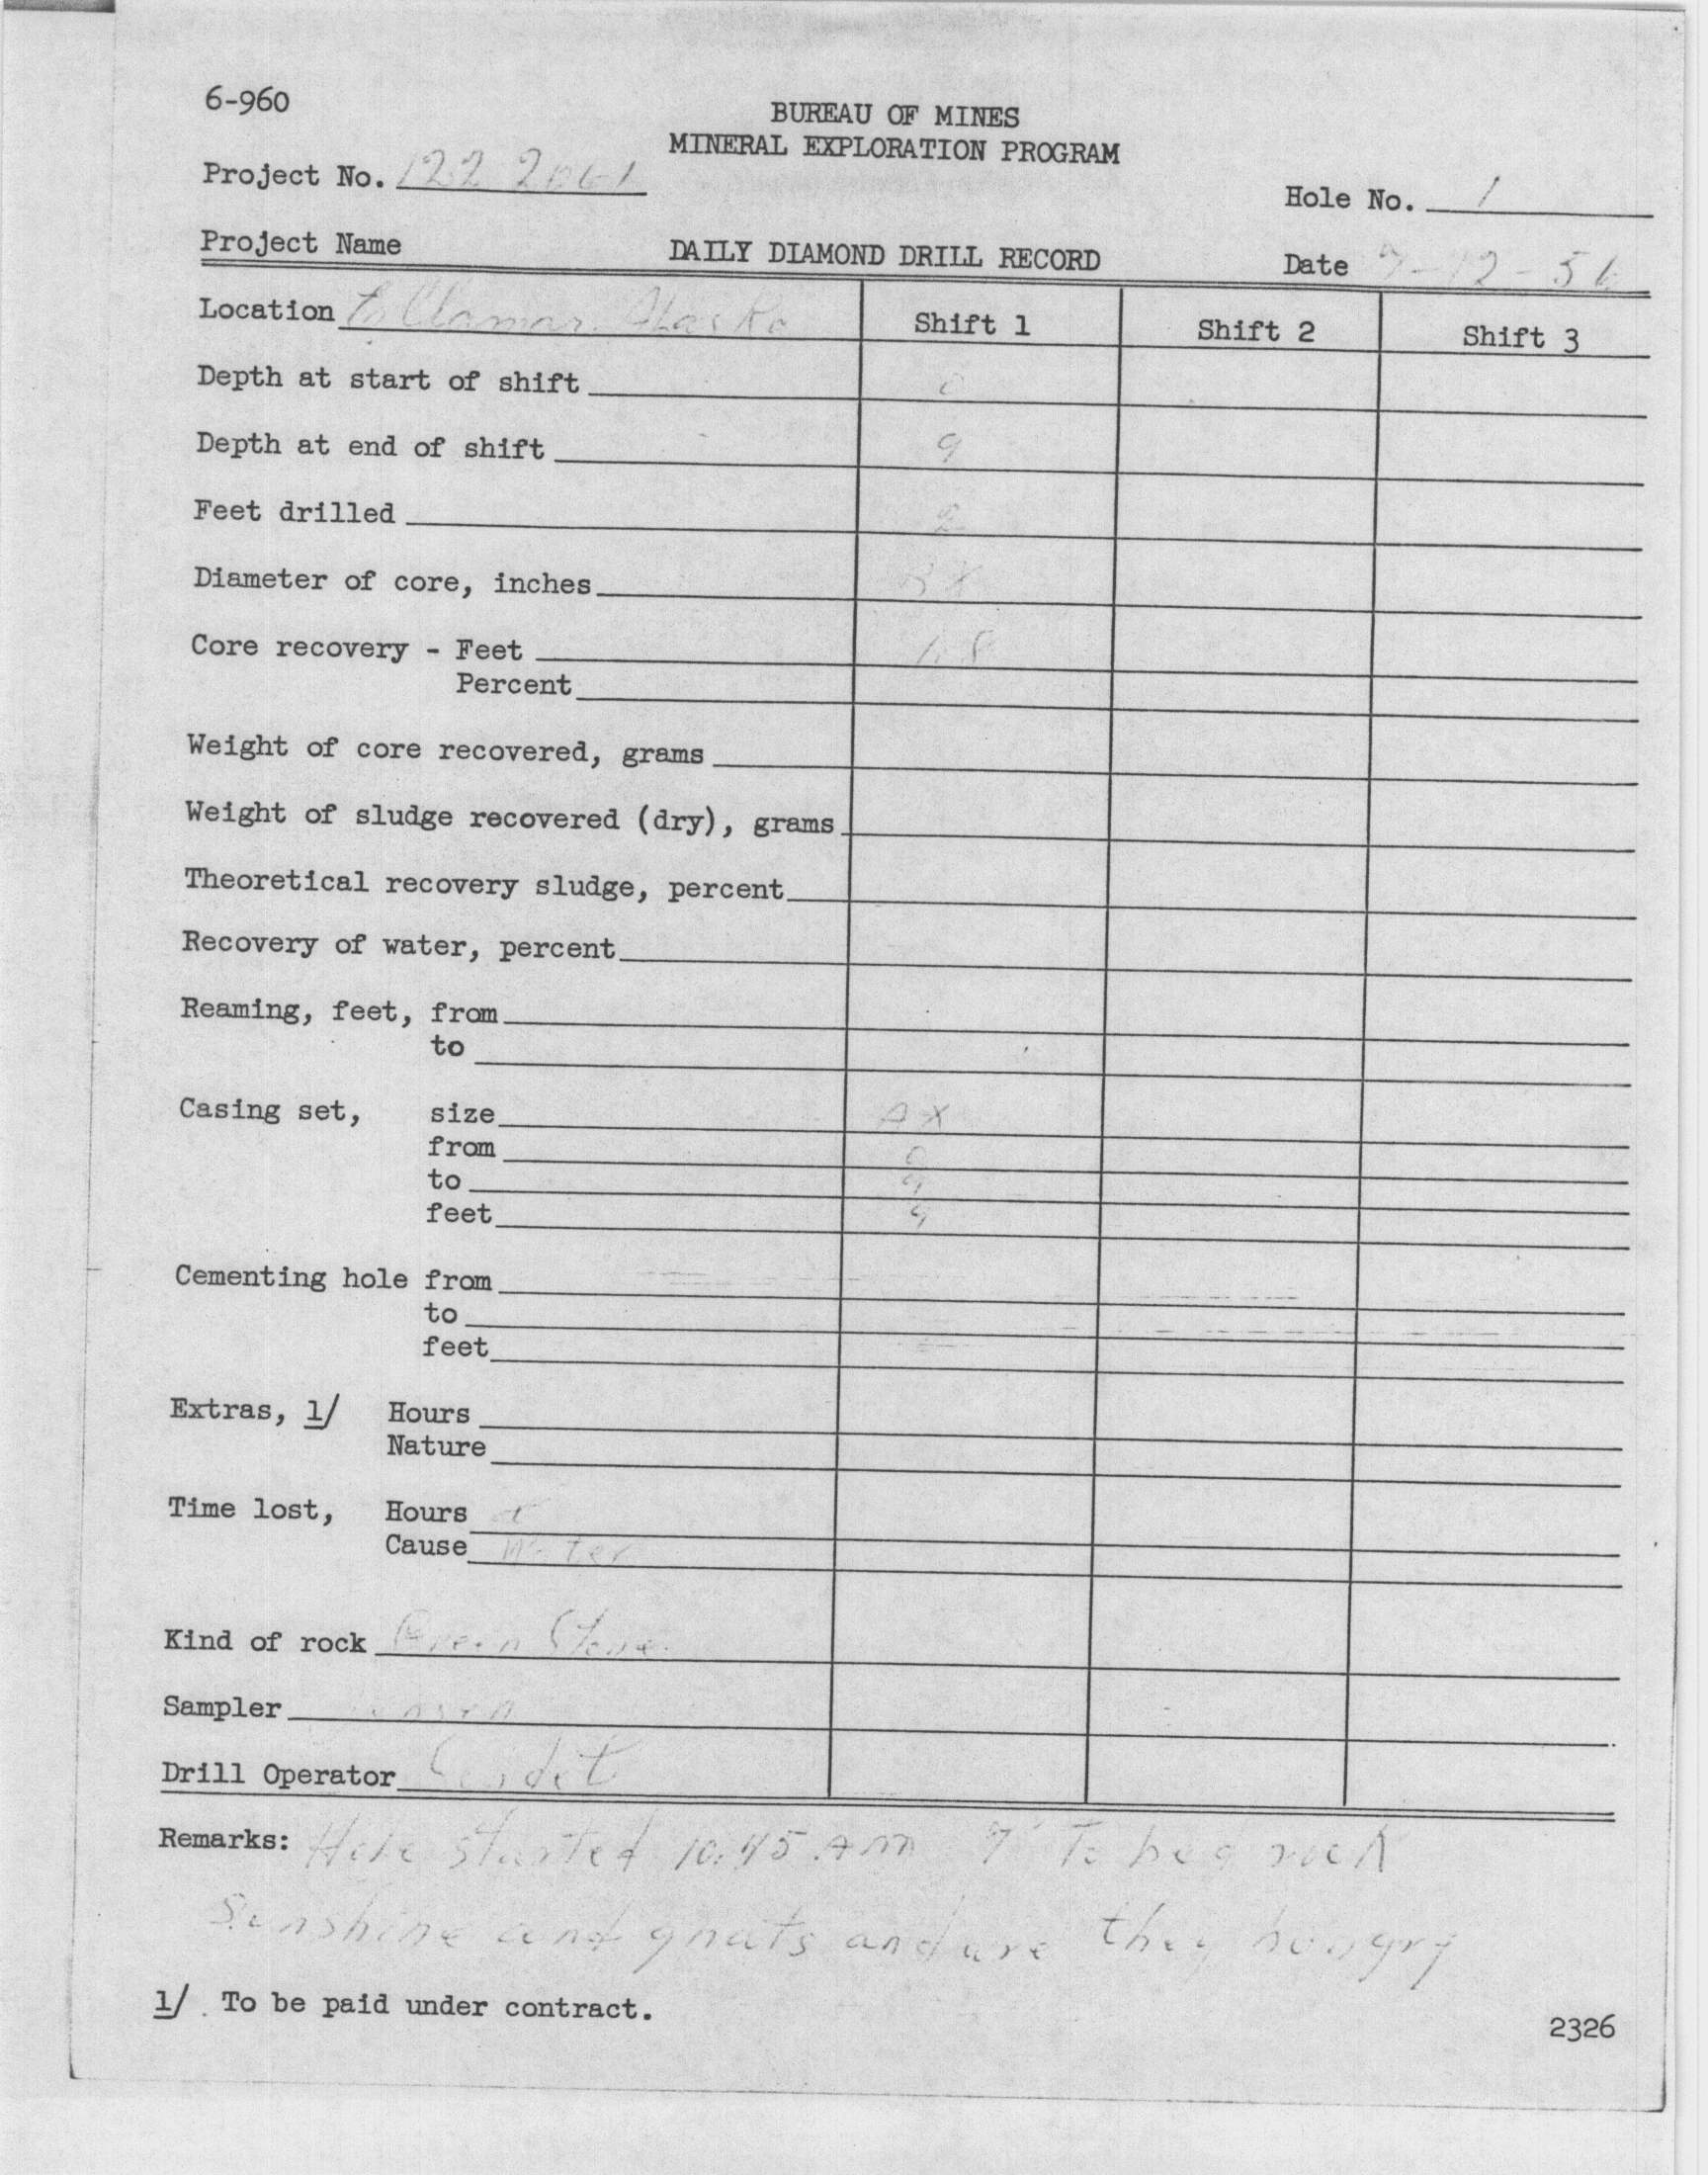 6-960
BUREAU OF MINES
MINERAL EXPLORATION PROGRAM
Project No. 122
Hole No. 1
Project Name
DAILY DIAMOND DRILL RECORD
Date 7-12-56
Location Alaska
Shift 1 Shift 2 Shift 3
Depth at start of shift 0
Depth at end of shift 9
Feet drilled 2
Diameter of core, inches BX
Core recovery - Feet 1.8
Percent
Weight of core recovered, grams
Weight of sludge recovered (dry), grams
Theoretical recovery sludge, percent
Recovery of water, percent
Reaming, feet, from
to
Casing set, size AX
from 0
to 9
feet 9
Cementing hole from
to
feet
Extras, 1/ Hours
Nature
Time lost, Hours
Cause Water
Kind of rock Green Stone
Sampler
Drill Operator
Remarks: Hole started 10:45 AM 7' To bed rock
Sunshine and gnats and are they hungry
1/ To be paid under contract.
2326